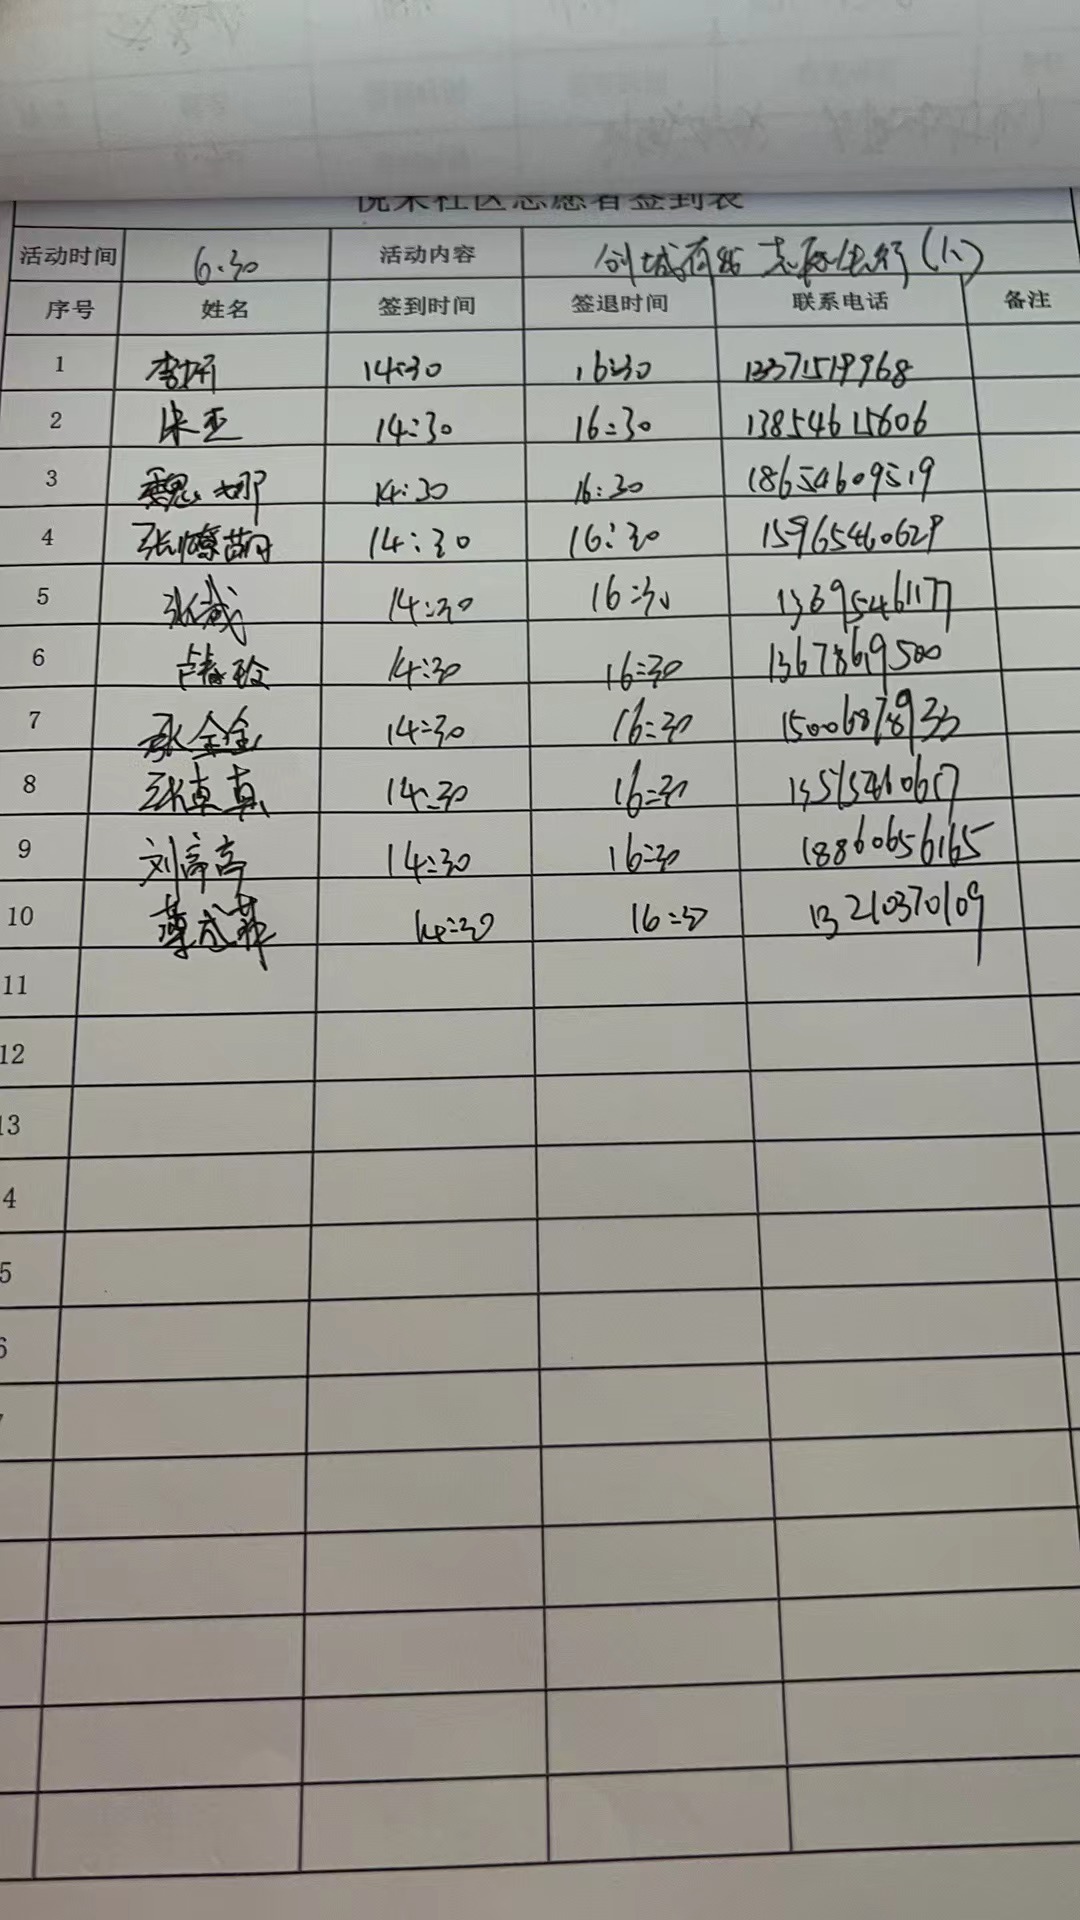 社区志愿者签到表
活动时间 6.30 活动内容 创城有我 志愿先行(八)
序号 姓名 签到时间 签退时间 联系电话 备注
1 李妍 14:30 16:30 13371519968
2 宋亚 14:30 16:30 13854615606
3 魏娜 14:30 16:30 18654609519
4 张 14:30 16:30 15965460629
5 张斌 14:30 16:30 13695461177
6 卢春玲 14:30 16:30 13678619500
7 张金金 14:30 16:30 15006878933
8 张真真 14:30 16:30
9 刘亭亭 14:30 16:30 18860656165
10 薄成菲 14:30 16:30 13210370109
11
12
13
4
5
6